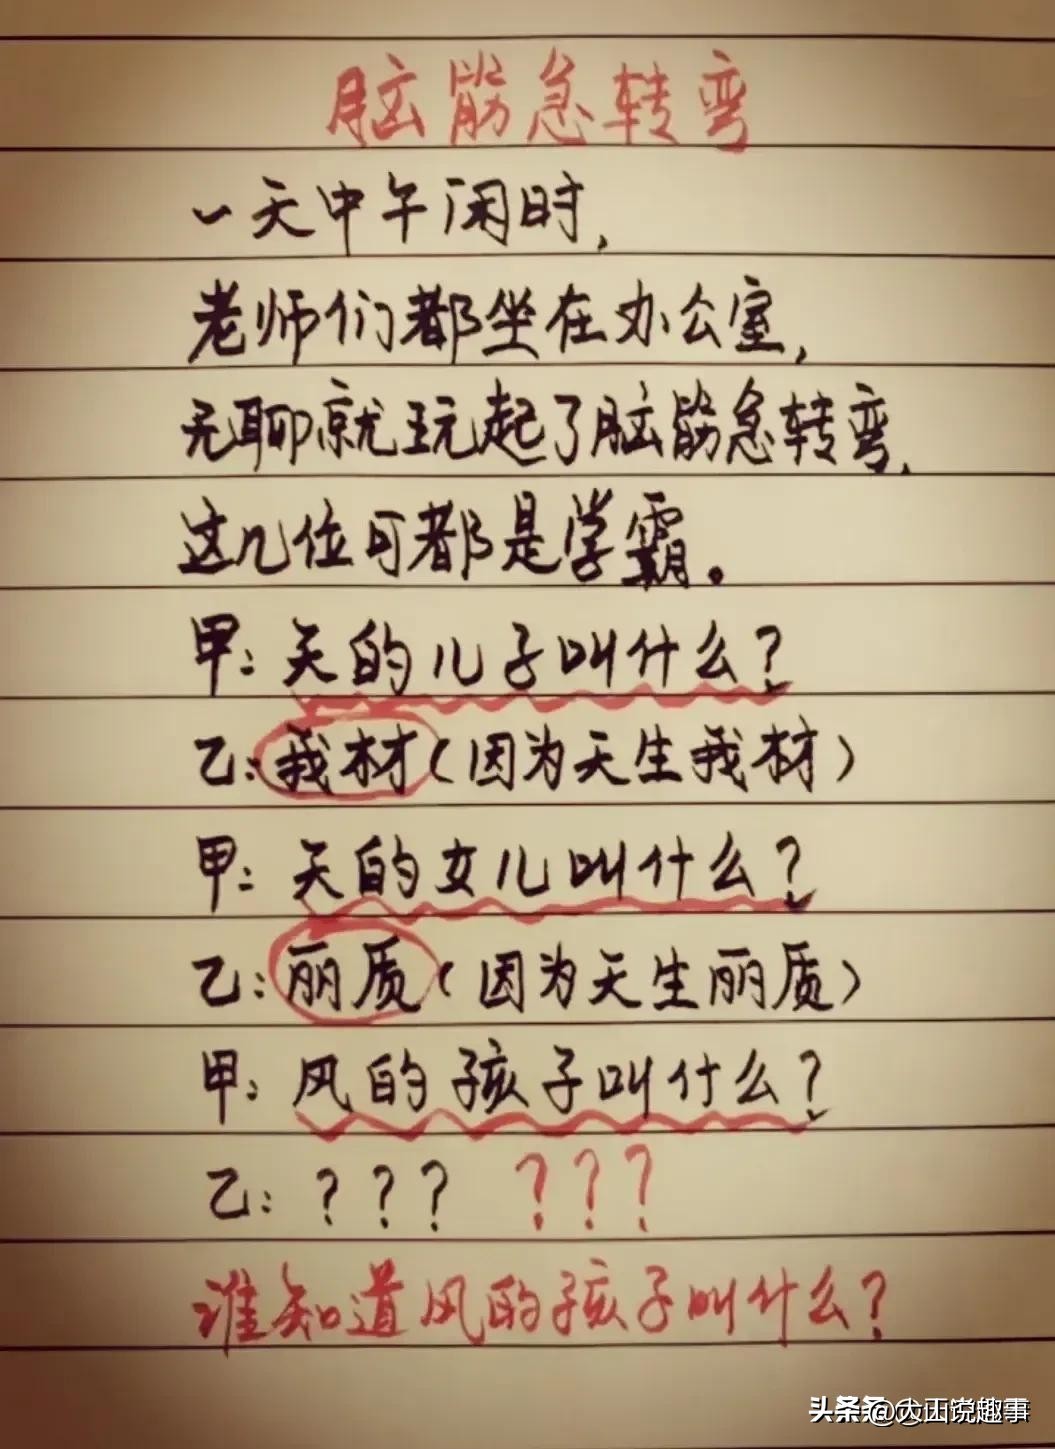 脑筋急转弯
一天中午闲时,
老师们都坐在办公室,
无聊就玩起了脑筋急转弯,
这几位可都是学霸。
甲：天的儿子叫什么？
乙：我材（因为天生我材）
甲：天的女儿叫什么？
乙：丽质（因为天生丽质）
甲：风的孩子叫什么？
乙：？？？ ？？？
谁知道风的孩子叫什么？
头条 @大山说趣事